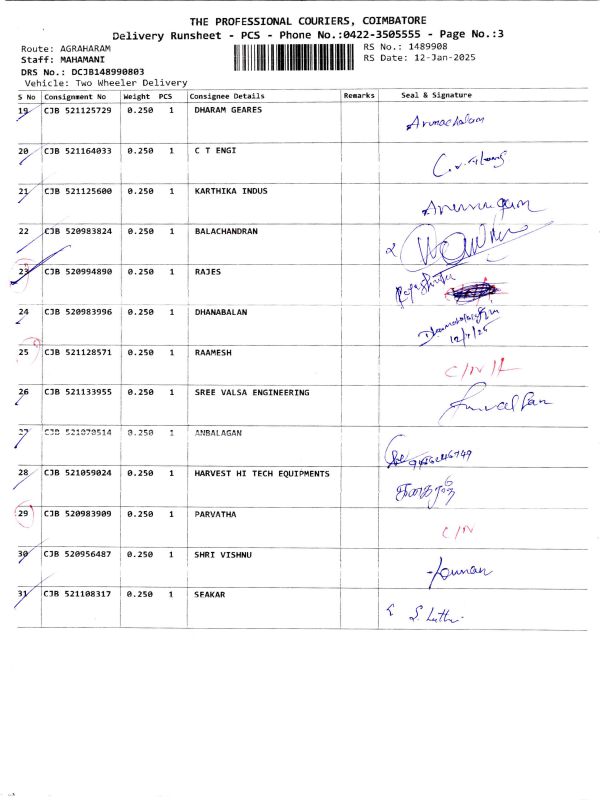 THE PROFESSIONAL COURIERS, COIMBATORE
Delivery Runsheet - PCS - Phone No.:0422-3505555 - Page No.:3
Route: AGRAHARAM RS No.: 1489908
Staff: MAHAMANI RS Date: 12-Jan-2025
DRS No.: DCJB148990803
Vehicle: Two Wheeler Delivery
S No Consignment No Weight PCS Consignee Details Remarks Seal & Signature
19 CJB 521125729 0.250 1 DHARAM GEARES Arunachalam
20 CJB 521164033 0.250 1 C T ENGI
21 CJB 521125600 0.250 1 KARTHIKA INDUS
22 CJB 520983824 0.250 1 BALACHANDRAN
23 CJB 520994890 0.250 1 RAJES
24 CJB 520983996 0.250 1 DHANABALAN
25 CJB 521128571 0.250 1 RAAMESH
26 CJB 521133955 0.250 1 SREE VALSA ENGINEERING
27 CJB 521070514 0.250 1 ANBALAGAN
28 CJB 521059024 0.250 1 HARVEST HI TECH EQUIPMENTS
29 CJB 520983909 0.250 1 PARVATHA C/N
30 CJB 520956487 0.250 1 SHRI VISHNU
31 CJB 521108317 0.250 1 SEAKAR